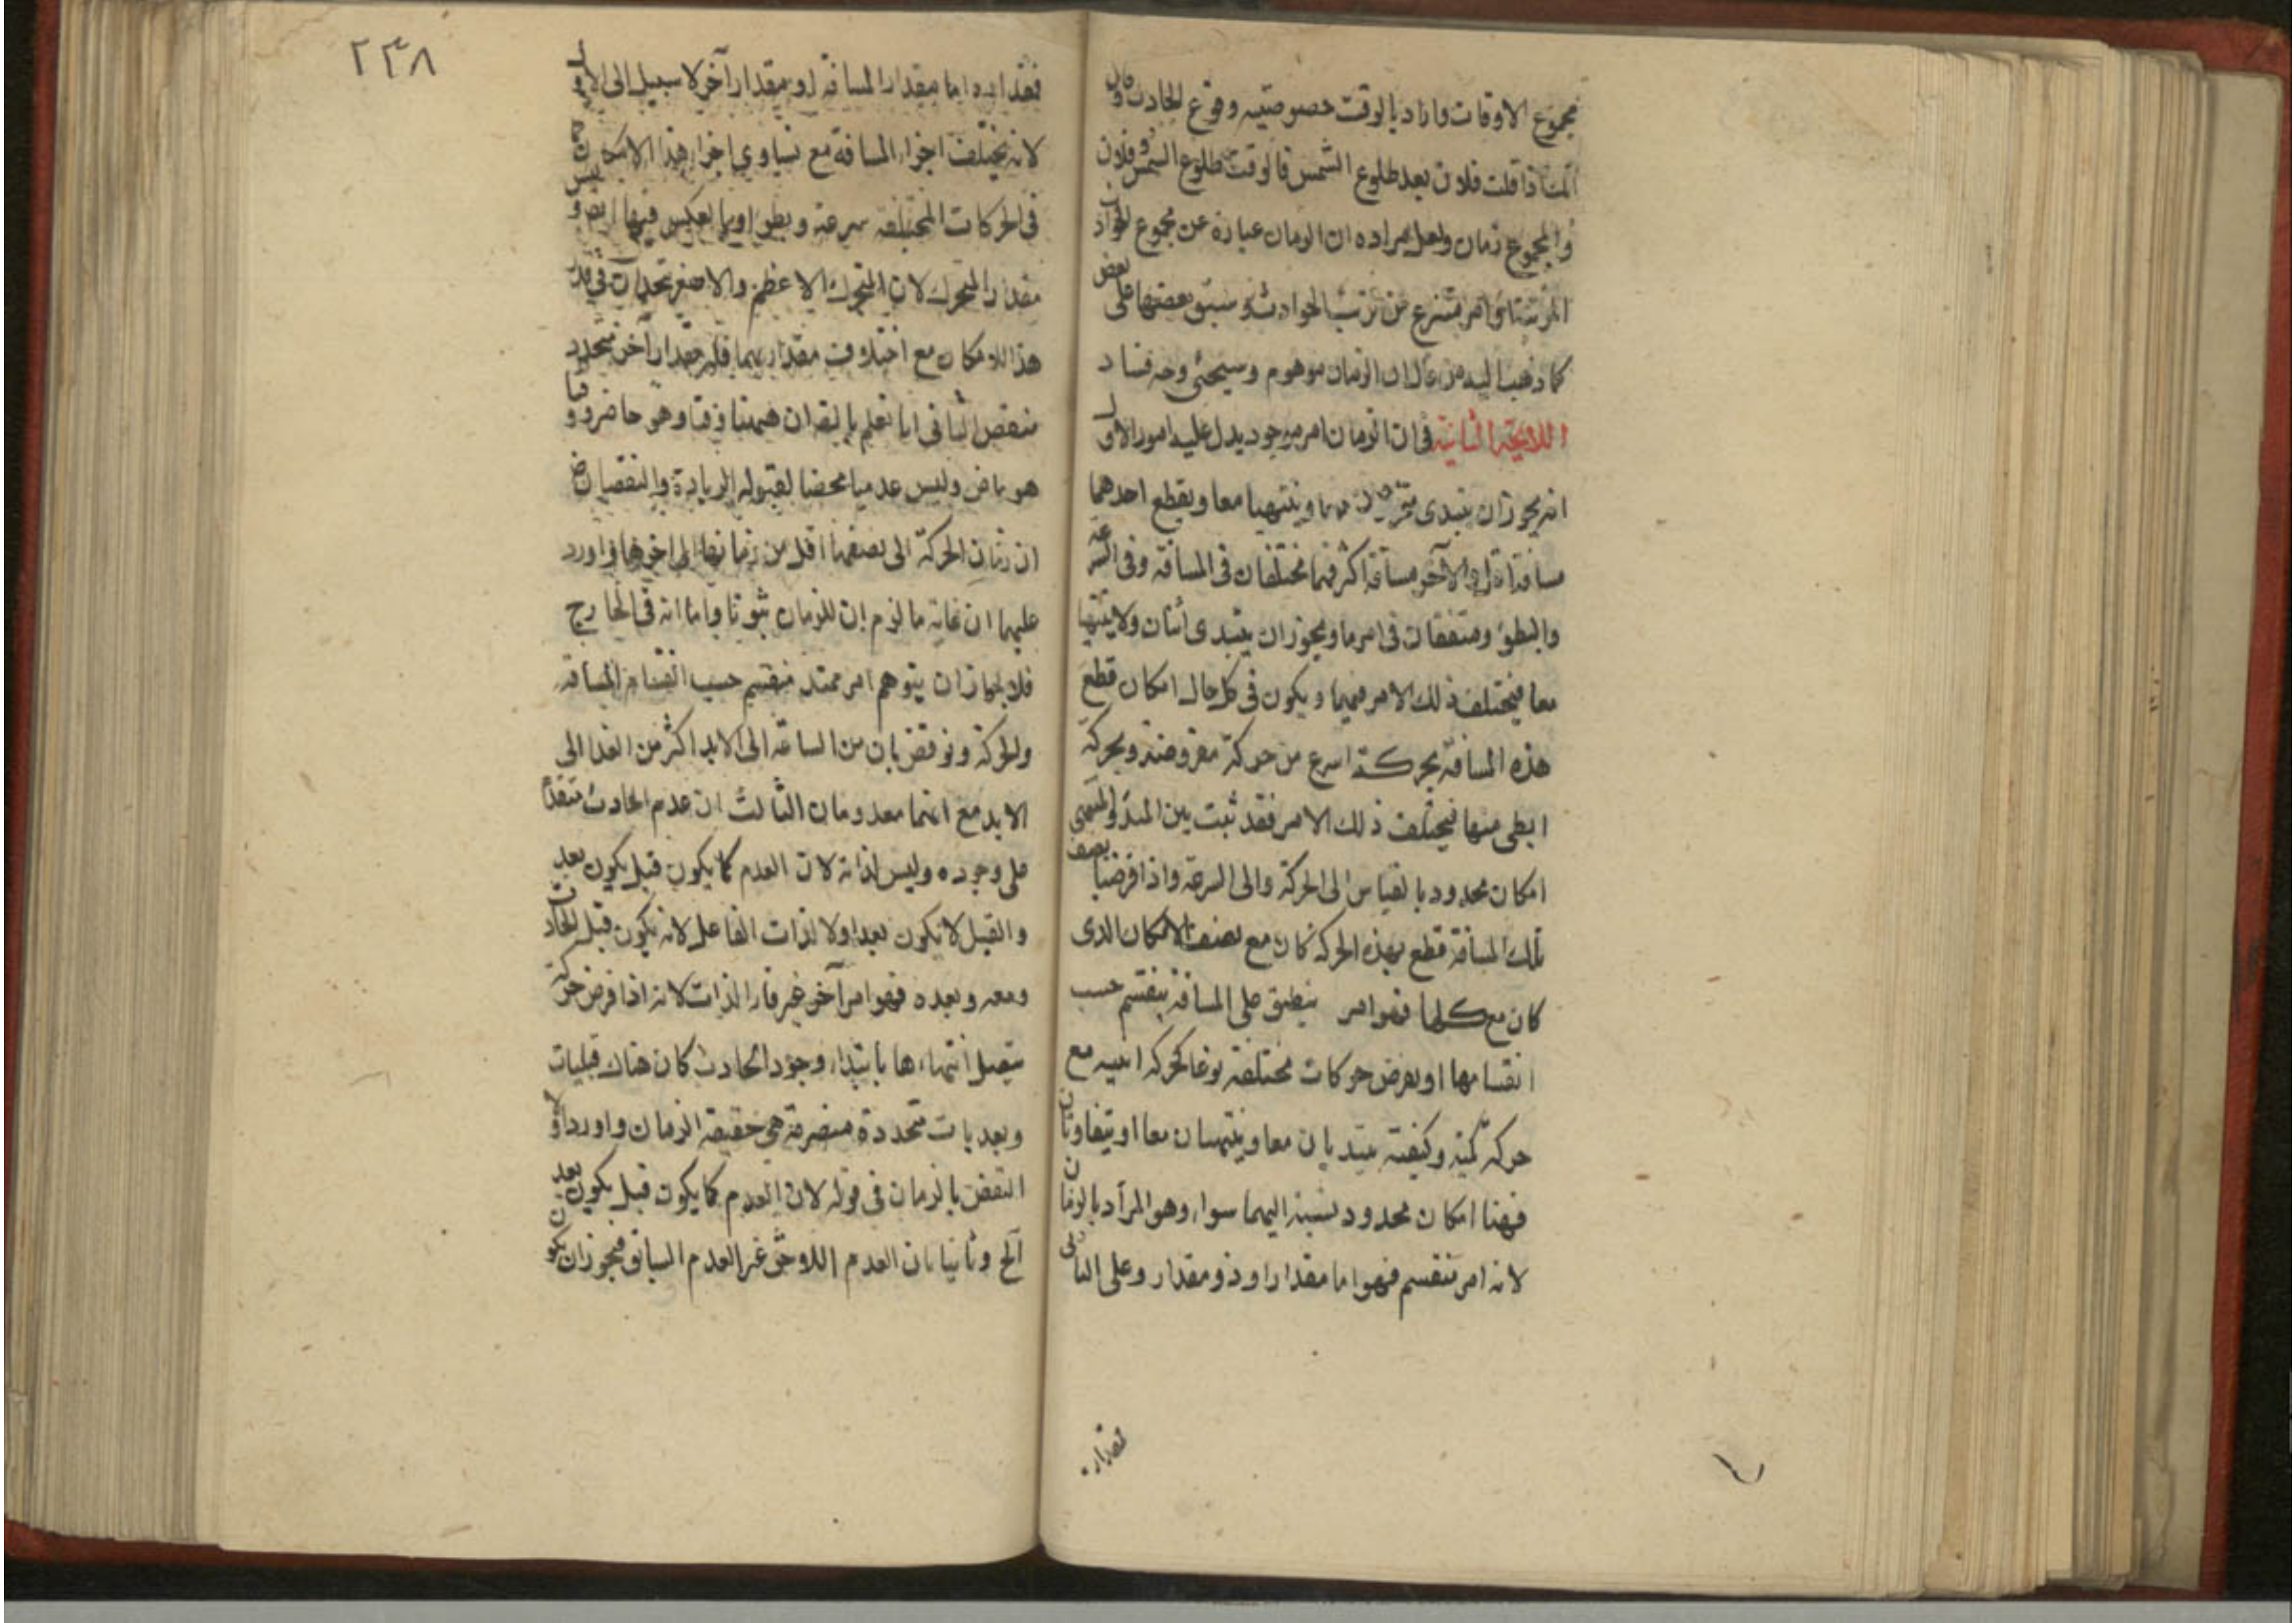 مجموع الاوقات واراد بالوقت خصوصتيه وقوع الحادث فان
اذا قلت فلان بعد طلوع الشمس فالوقت طلوع الشمس وفلان
والمجموع زمان ولعل مراده ان الزمان عبارة عن مجموع الحوادث
المرتبة او امر منتزع من ترتب الحوادث وسبق بعضها على بعض
كما ذهب اليه من قال ان الزمان موهوم وسيجئ وجه فساد
اللايحة الثانية فى ان الزمان امر موجود يدل عليه امور الاول
انه يجوز ان يبتدى معا وينتهيا معا ويقطع احدهما
مسافة اقل والآخر مسافة اكثر فهما مختلفان فى المسافة وفى السرعة
والبطؤ ومتفقان فى امر ما ويجوز ان يبتدى اثنان ولا ينتهيا
معا فيختلف ذلك الامر فيهما ويكون فى كل حال امكان قطع
هذه المسافة بحركة اسرع من حركة مفروضة وبحركة
ابطى منها فيختلف ذلك الامر فقد ثبت بين المبدأ والمنتهى
امكان محدود بالقياس الى الحركة والى السرعة واذا فرضنا نصف
تلك المسافة قطع بهذه الحركة كان مع نصف الامكان الذى
كان مع كلها فهو امر ينطبق على المسافة ينقسم حسب
انقسامها او نفرض حركات مختلفة نوعا كحركة اينيه مع
حركة كمية وكيفية يبتديان معا وينتهيان معا او يتفاوتان
فهنا امكان محدود نسبته اليهما سواء وهو المراد بالزمان
لانه امر منقسم فهو اما مقدار او ذو مقدار وعلى الثانى
مقدار
٢٣٨
فمقداره اما مقدار المسافة او مقدار آخر لا سبيل الى الاول
لانه يختلف اجزاء المسافة مع تساوي اجزاء هذا الامكان
فى الحركات المختلفة سرعة وبطؤا وبالعكس فيهما ايضا وليس
مقدار المتحرك لان المتحرك الاعظم والاصغر يتحدان فى قدر
هذا الامكان مع اختلاف مقداريهما فله مقدار آخر متجدد
منقض الثانى انا نعلم بالبديهة ان ههنا وقتا هو حاضر ووقتا
هو ماض وليس عدميا محضا لقبوله الزيادة والنقصان
ان زمان الحركة الى نصفها اقل من زمانها الى آخرها واورد
عليهما ان غاية ما لزم ان للزمان ثبوتا واما انه فى الخارج
فلا لجواز ان يتوهم امر ممتد منقسم حسب انقسام المسافة
والحركة ونوقض بان من الساعة الى الابد اكثر من الغد الى
الابد مع انهما معدومان الثالث ان عدم الحادث متقدم
على وجوده وليس لذاته لان العدم كما يكون قبل يكون بعد
والقبل لا يكون بعد ولا لذات الفاعل لانه يكون قبل الحادث
ومعه وبعده فهو امر آخر غير قار الذات لانه اذا فرض حركة
يتصل انتهاءها بابتداء وجود الحادث كان هناك قبليات
وبعديات متجددة منصرمة هى حقيقة الزمان واورد اولا
النقض بالزمان فى قوله لان العدم كما يكون قبل يكون بعد
آلخ وثانيا بان العدم اللاحق غير العدم السابق فيجوز ان يكون